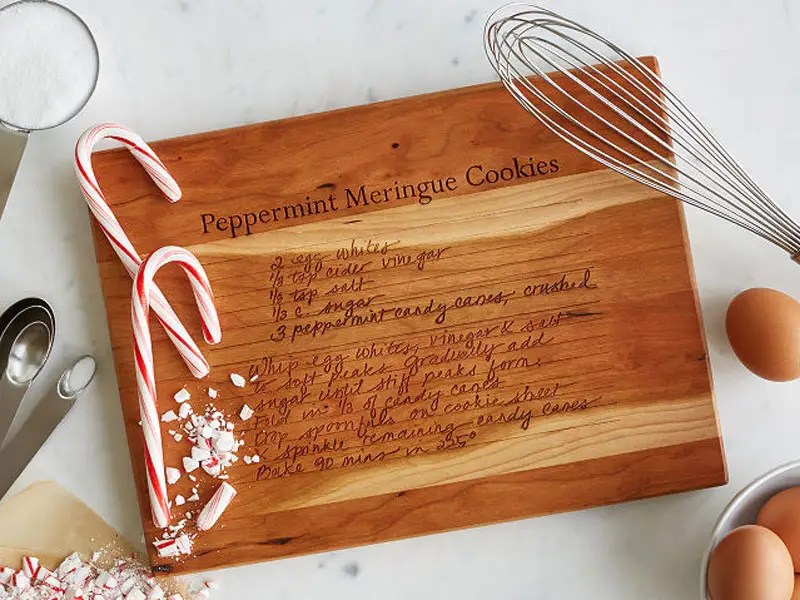 Peppermint Meringue Cookies
2 egg whites
⅛ tsp cider vinegar
⅛ tsp salt
⅓ c. sugar
3 peppermint candy canes, crushed
Whip egg whites, vinegar & salt
to soft peaks gradually add
sugar until stiff peaks form.
Fold in ⅓ of candy canes
Drop spoonfuls on cookie sheet
& sprinkle remaining candy canes
Bake 90 mins in 225°